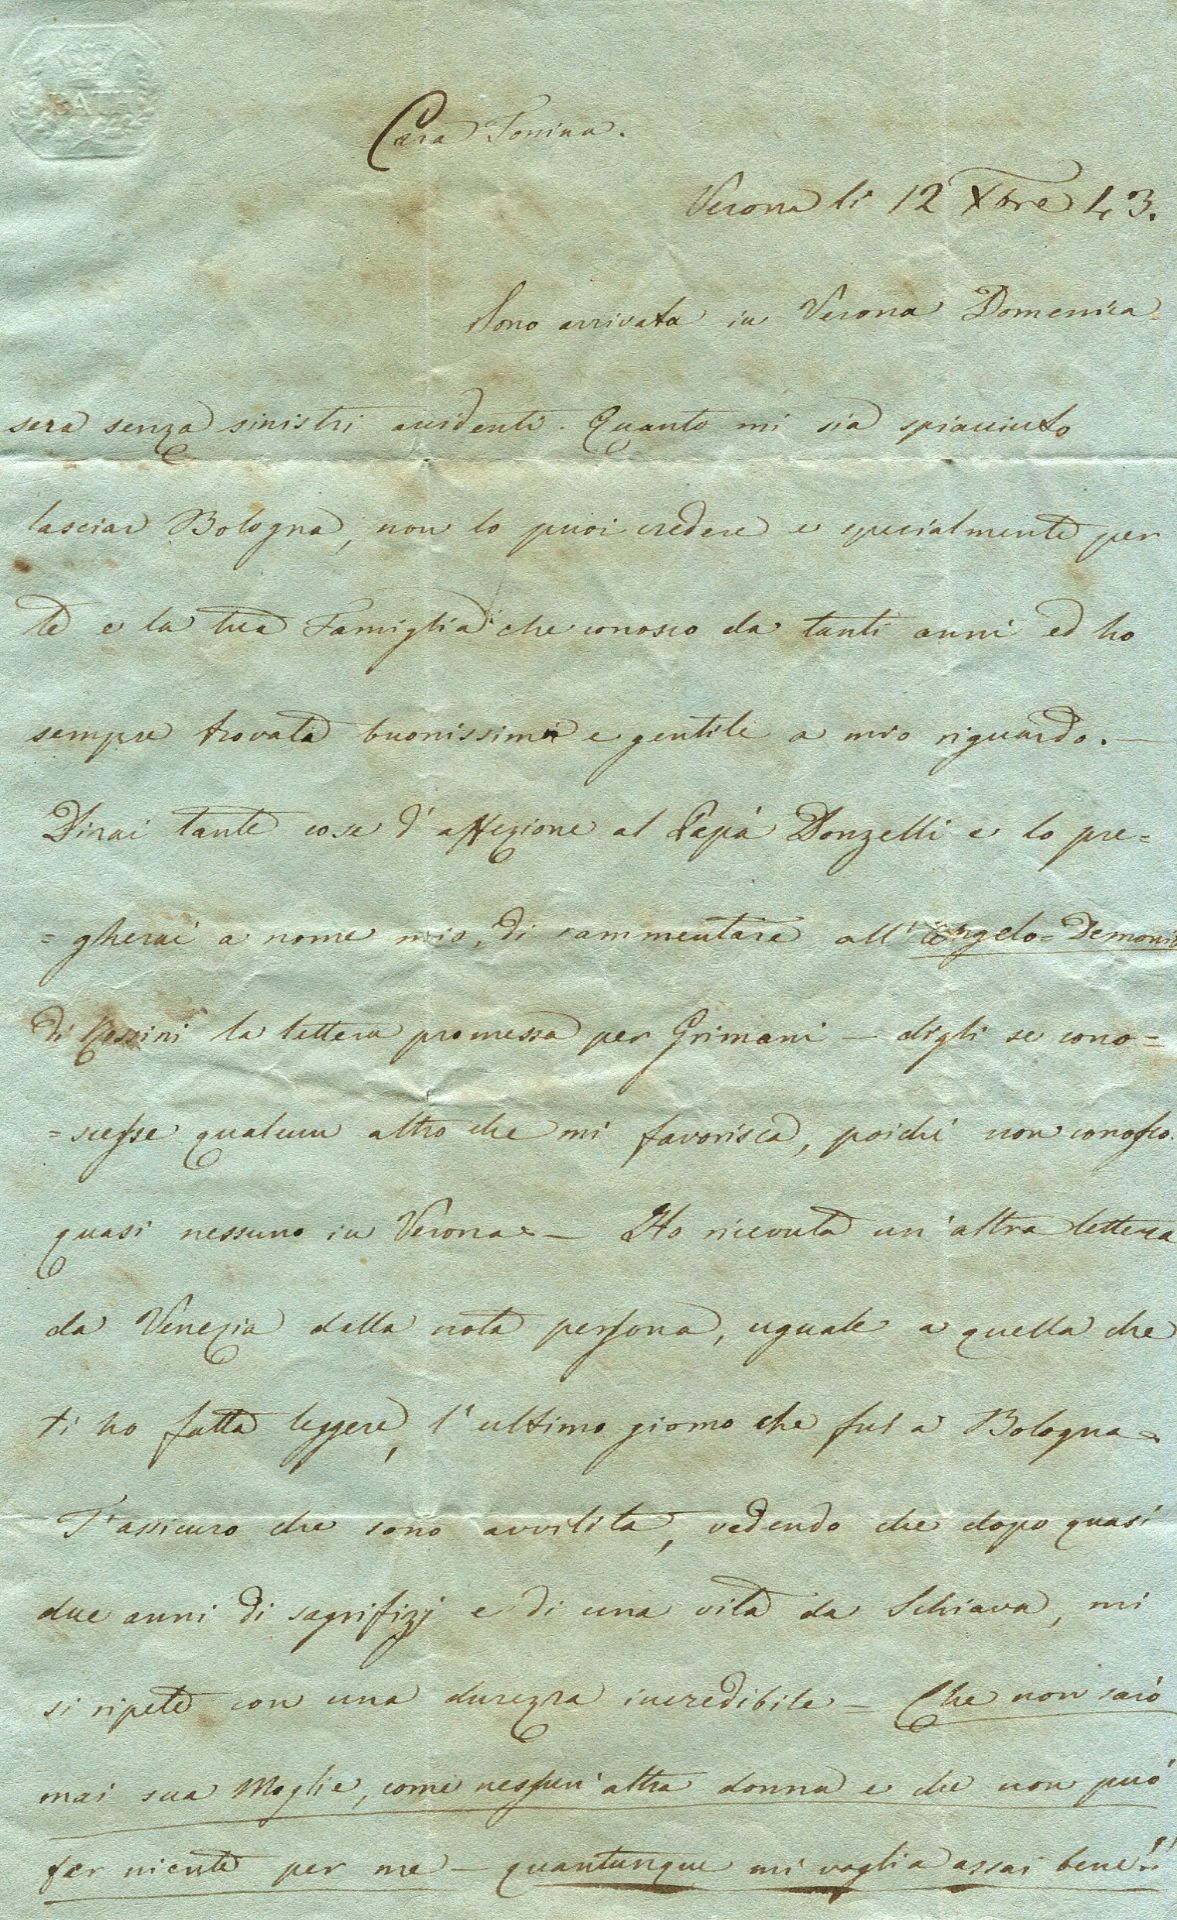 Cara Tonina.
Verona li 12 Xbre 43.
Sono arrivata in Verona Domenica
sera senza sinistri accidenti. Quanto mi sia spiacciuto
lasciar Bologna, non lo puoi credere e specialmente per
te e la tua Famiglia che conosco da tanti anni ed ho
sempre trovata buonissima e gentile a mio riguardo. —
Dirai tante cose d'affezione al Papà Donzelli e lo pre=
=gherai a nome mio, di rammentare all'Angelo=Demonio
di Rossini la lettera promessa per Grimani — digli se cono=
=scesse qualcun altro che mi favorisca, poichè non conosco
quasi nessuno in Verona. — Ho ricevuta un'altra lettera
da Venezia dalla nota persona, uguale a quella che
ti ho fatta leggere, l'ultimo giorno che fui a Bologna.
T'assicuro che sono avvilita, vedendo che dopo quasi
due anni di sagrifizj e di una vita da Schiava, mi
si ripete con una durezza incredibile = Che non sarò
mai sua Moglie, come nessun'altra donna e che non può
far niente per me — quantunque mi voglia assai bene!!